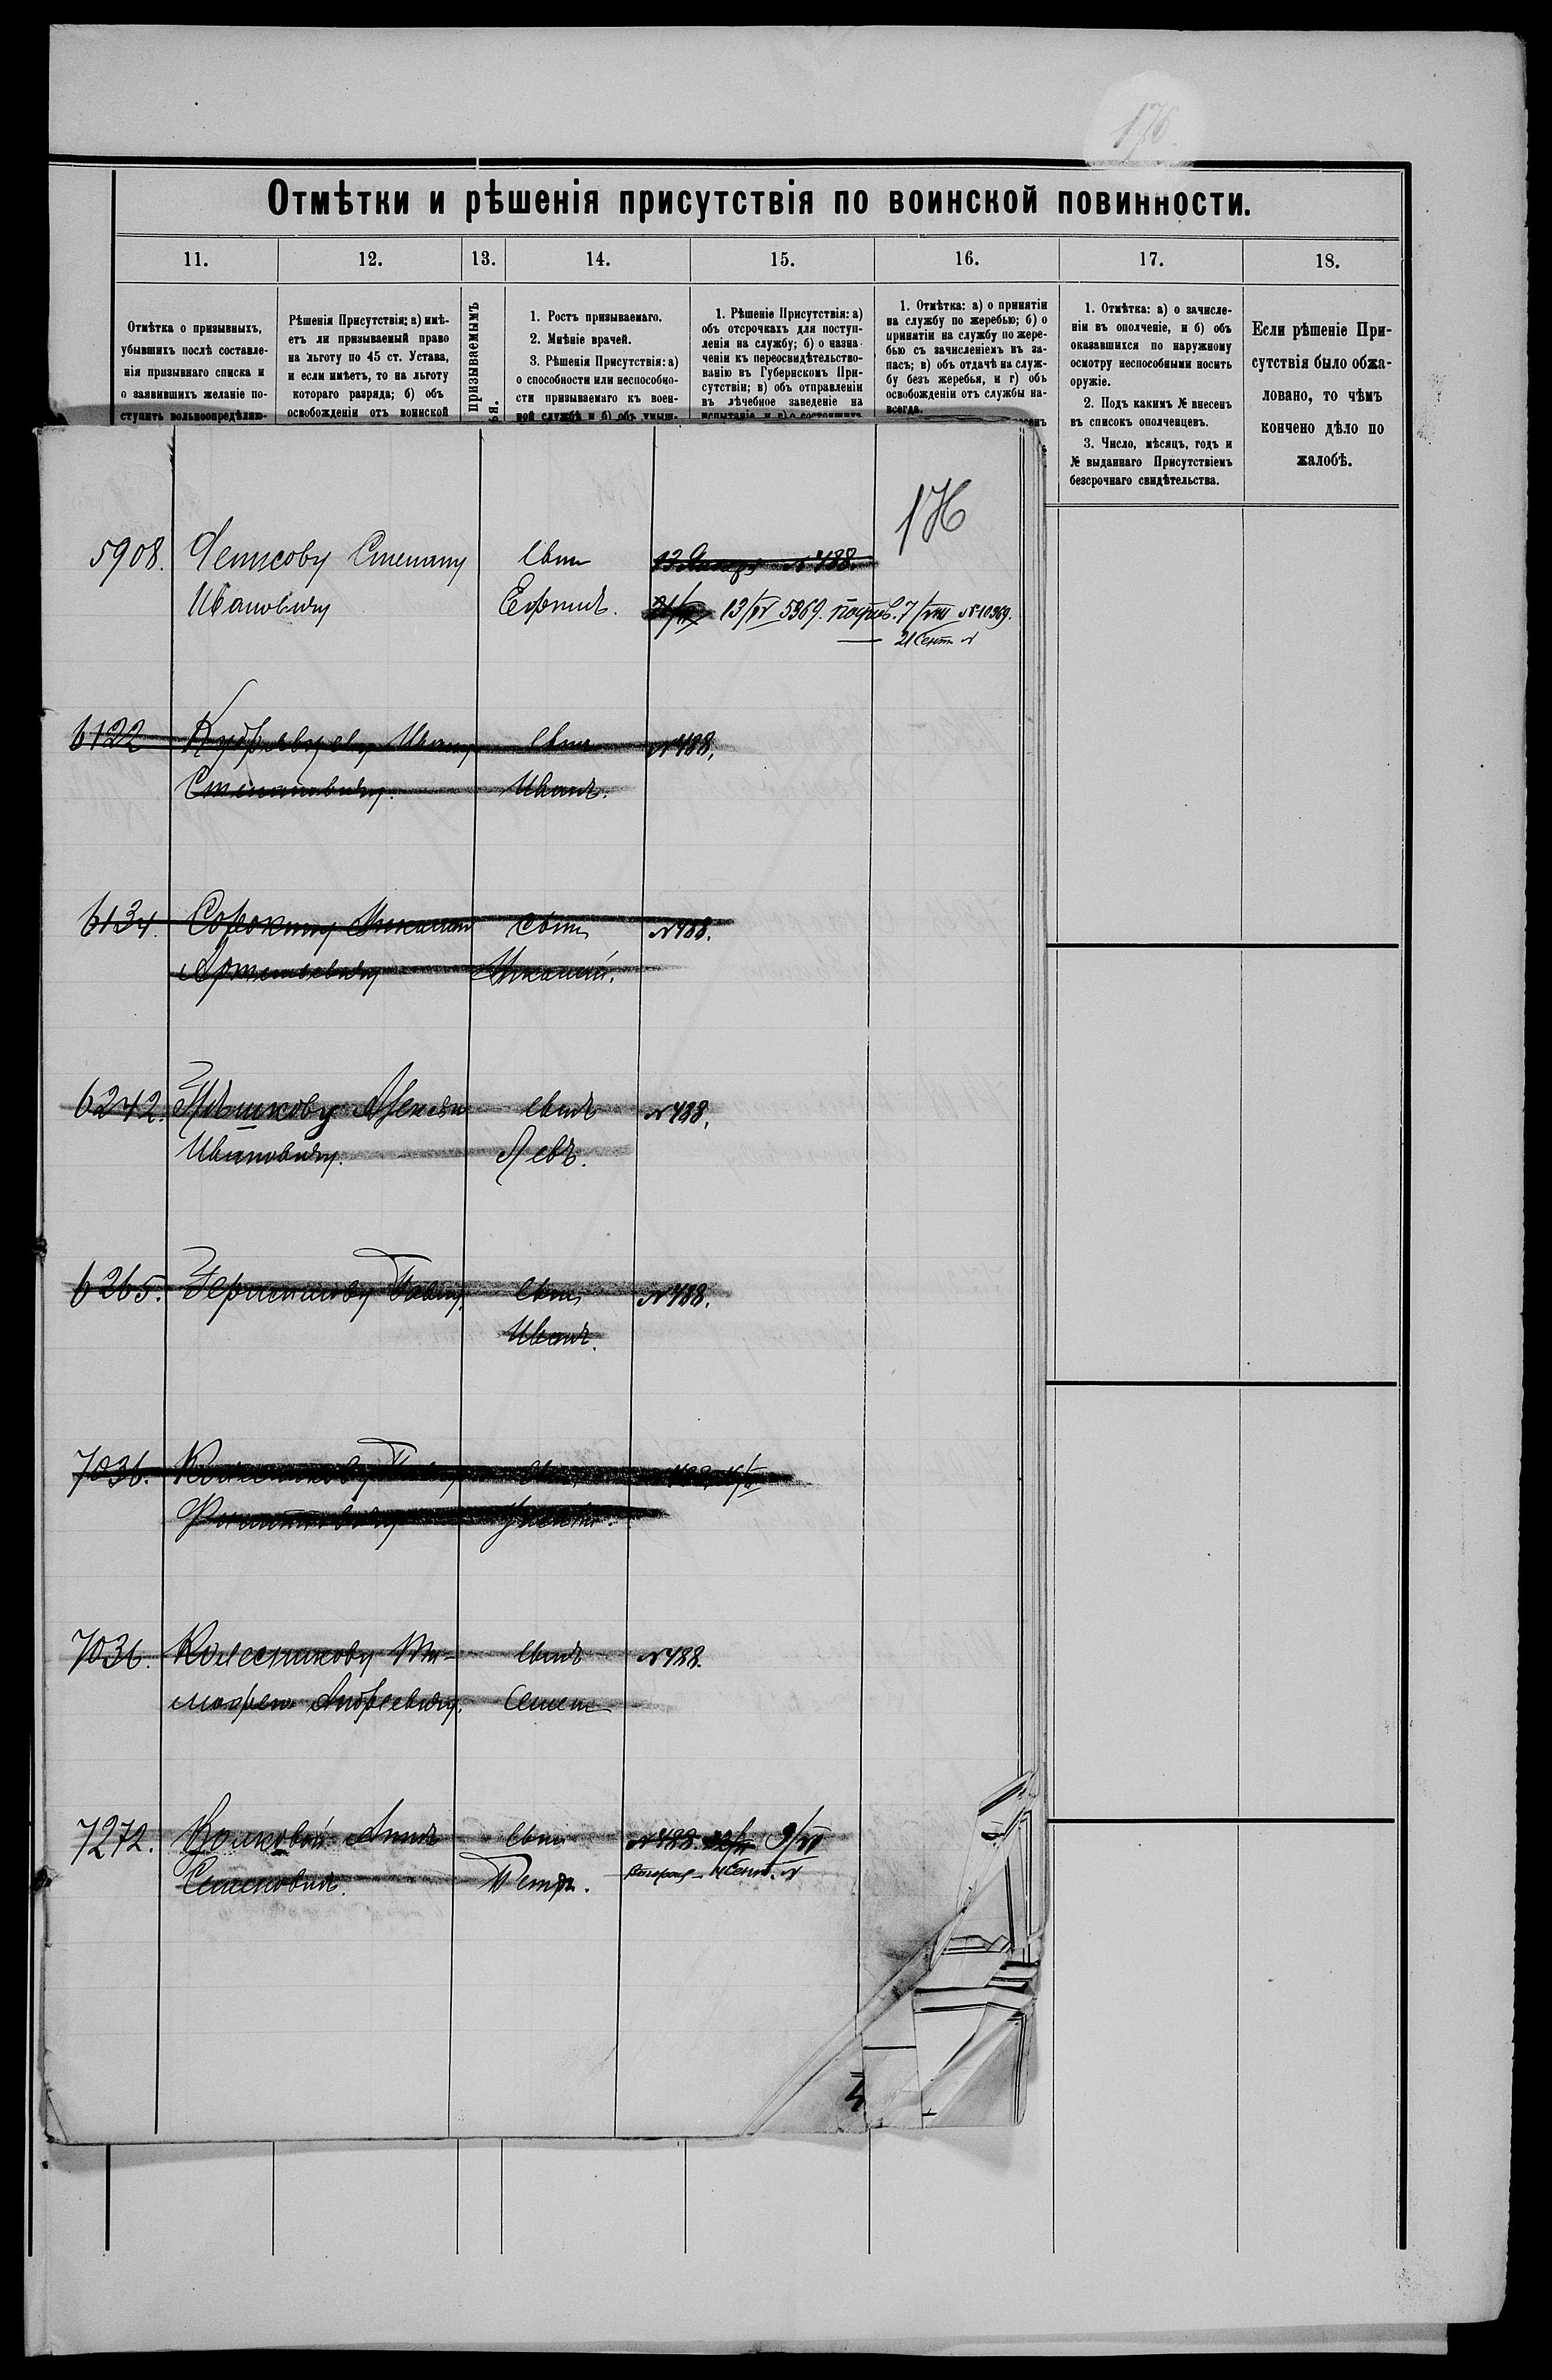 176.
Отмѣтки и рѣшенія присутствія по воинской повинности.
11. 12. 13. 14. 15. 16. 17. 18.
Отмѣтка о призывныхъ,
убывшихъ послѣ составле-
нія призывнаго списка и
о заявившихъ желаніе по-
ступить вольноопредѣляю-
Рѣшенія Присутствія: а) имѣ-
етъ ли призываемый право
на льготу по 45 ст. Устава,
и если имѣетъ, то на льготу
котораго разряда; б) объ
освобожденіи отъ воинской
призываемымъ
1. Ростъ призываемаго.
2. Мнѣніе врачей.
3. Рѣшенія Присутствія: а)
о способности или неспособно-
сти призываемаго къ воен-
ной службѣ и б) объ умыш-
1. Рѣшеніе Присутствія: а)
объ отсрочкахъ для поступ-
ленія на службу; б) о назна-
ченіи къ переосвидѣтельство-
ванію въ Губернскомъ При-
сутствіи; в) объ отправленіи
въ лѣчебное заведеніе на
испытаніе и г) о состоящихъ
1. Отмѣтка: а) о принятіи
на службу по жеребью; б) о
принятіи на службу по жере-
бью съ зачисленіемъ въ за-
пасъ; в) объ отдачѣ на служ-
бу безъ жеребья, и г) объ
освобожденіи отъ службы на-
всегда.
1. Отмѣтка: а) о зачисле-
ніи въ ополченіе, и б) объ
оказавшихся по наружному
осмотру неспособными носить
оружіе.
2. Подъ какимъ № внесенъ
въ списокъ ополченцевъ.
3. Число, мѣсяцъ, годъ и
№ выданнаго Присутствіемъ
безсрочнаго свидѣтельства.
Если рѣшеніе При-
сутствія было обжа-
ловано, то чѣмъ
кончено дѣло по
жалобѣ.
176
5908. Денисову Степану свит 13 Января №488.
Ивановичу Ефимъ. 13/IV 5369. 7/VIII №10369.
21 Сент №
6122 Кудрявцеву Ивану №488.
Степановичу. Иванъ.
6134. Сорокину Николаю №488.
Артемьевичу Николай.
6242. Алексѣю №488.
Ивановичу. Левъ.
6265. Павлу №488.
Иванъ.
7036. Колесникову Павлу
Филипповичу
7036. Колесникову Ти- №488.
мофею Андреевичу. Семен
7272. Волковой Аннѣ №488. 9/VI
Семеновнѣ. Петръ. Сент. №